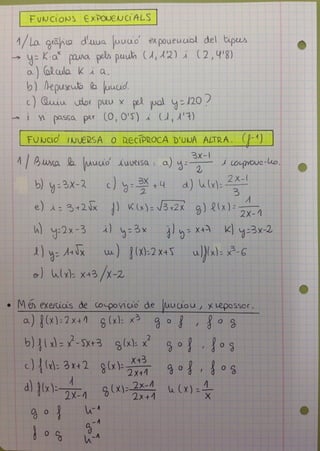 FUNCIONS EXPONENCIALS
1/ La gràfica d'una funció exponencial del tipus
→ y = K·aˣ passa pels punts (1, 1'2) i (2, 4'8)
a) Calcula K i a.
b) Representa la funció.
c) Quin valor pren x pel qual y = 120?
→ i si passa per (0, 0'5) i (1, 1'7)
FUNCIÓ INVERSA O RECÍPROCA D'UNA ALTRA. (f⁻¹)
1/ Busca la funció inversa: a) y = 3x-1/2 i comprova-ho.
b) y = 3x-2 c) y = 3x/2 + 4 d) h(x) = 2x-1/3
e) = 3+2√x f) K(x) = √3+2x g) l(x) = 1/2x-1
h) y = 2x-3 i) y = 3x j) y = x+1 k) y = 3x-2
l) y = 1+√x m) f(x) = 2x+5 n) f(x) = x³-6
o) h(x) = x+3/x-2
• Més exercicis de composició de funcions, x repassar.
a) f(x) = 2x+1 g(x) = x³ g o f , f o g
b) f(x) = x²-5x+3 g(x) = x² g o f , f o g
c) f(x) = 3x+2 g(x) = x+3/2x+1 g o f , f o g
d) f(x) = 1/2x-1 g(x) = 2x-1/2x+1 h(x) = 1/x
g o f h⁻¹
f o g g⁻¹
h⁻¹